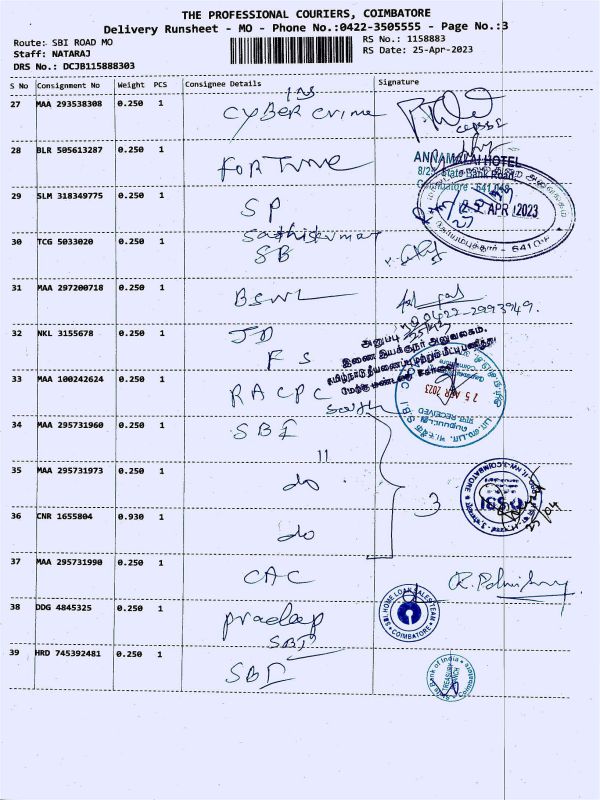 THE PROFESSIONAL COURIERS, COIMBATORE
Delivery Runsheet - MO - Phone No.:0422-3505555 - Page No.:3
Route: SBI ROAD MO
RS No.: 1158883
Staff: NATARAJ
RS Date: 25-Apr-2023
DRS No.: DCJB115888303
S No Consignment No Weight PCS Consignee Details Signature
27 MAA 293538308 0.250 1 Cyber crime
28 BLR 505613287 0.250 1 Fortune
ANNAMALAI HOTEL
State Bank Road
Coimbatore - 641 018
29 SLM 318349775 0.250 1 SP
25 APR 2023
30 TCG 5033020 0.250 1 Sathiskumar
SB
31 MAA 297200718 0.250 1 BSNL
0422-2993949.
32 NKL 3155678 0.250 1 JD
FS
அனுப்பு
இணை இயக்குநர் அலுவலகம்,
33 MAA 100242624 0.250 1 RACPC
South
25 APR 2023
RECEIVED
34 MAA 295731960 0.250 1 SBI
11
35 MAA 295731973 0.250 1 do
3
SBI
COIMBATORE
36 CNR 1655804 0.930 1 do
37 MAA 295731990 0.250 1 CAC
38 DDG 4845325 0.250 1 pradeep
SBI
SBI HOME LOAN SALES TEAM
COIMBATORE
39 HRD 745392481 0.250 1 SBI
State Bank of India
TREASURY
BRANCH
Coimbatore